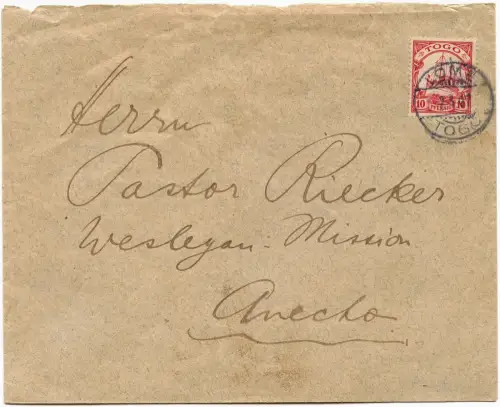 TOGO
10 10
LOME
TOGO
Herrn
Pastor Riecker
Wesleyan-Mission
Anecho